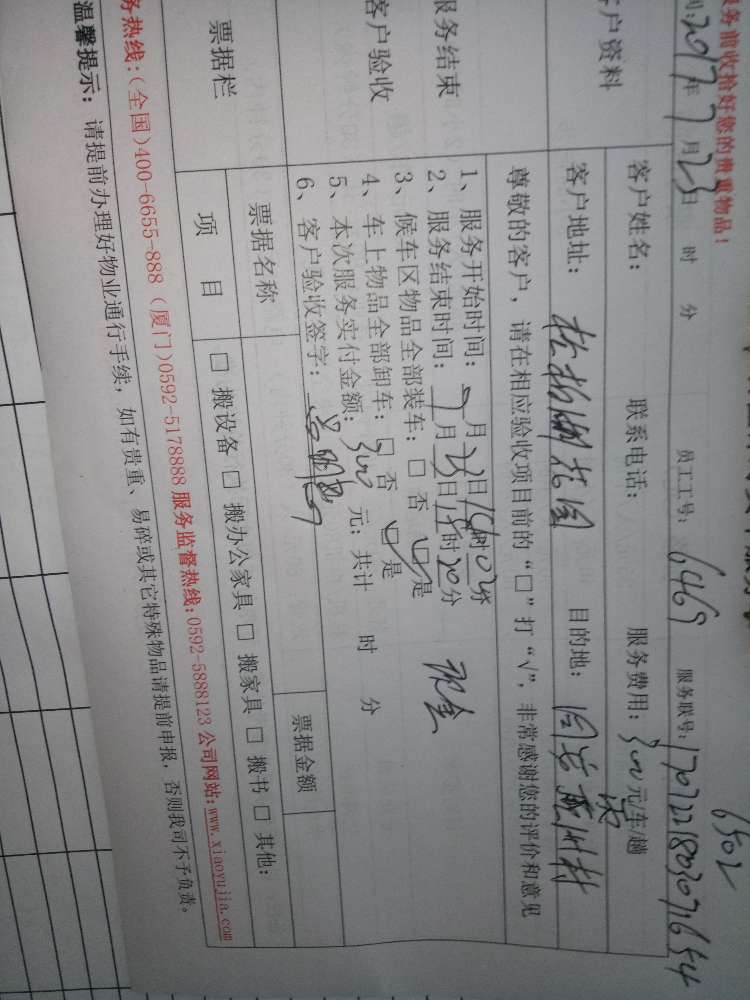 务前收拾好您的贵重物品！
6502
2017年7月23日 时 分 员工工号：6469 服务联号：
客户资料
客户姓名： 联系电话： 服务费用：300元/车/趟
客户地址： 目的地：
尊敬的客户，请在相应验收项目前的“□”打“√”，非常感谢您的评价和意见
服务结束
客户验收
1、服务开始时间：7月23日 时02分
2、服务结束时间：7月23日15时20分
3、候车区物品全部装车：□ 否 □ 是
4、车上物品全部卸车：□ 否 □ 是
5、本次服务实付金额：300 元；共计 时 分
现金
6、客户验收签字：
票据栏
票据名称 票据金额
项 目 □ 搬设备 □ 搬办公家具 □ 搬家具 □ 搬书 □ 其他：
务热线：(全国)400-6655-888 (厦门)0592-5178888 服务监督热线：0592-5888123 公司网站：www.xiaoyujia.com
温馨提示：请提前办理好物业通行手续，如有贵重、易碎或其它特殊物品请提前申报，否则我司不予负责。